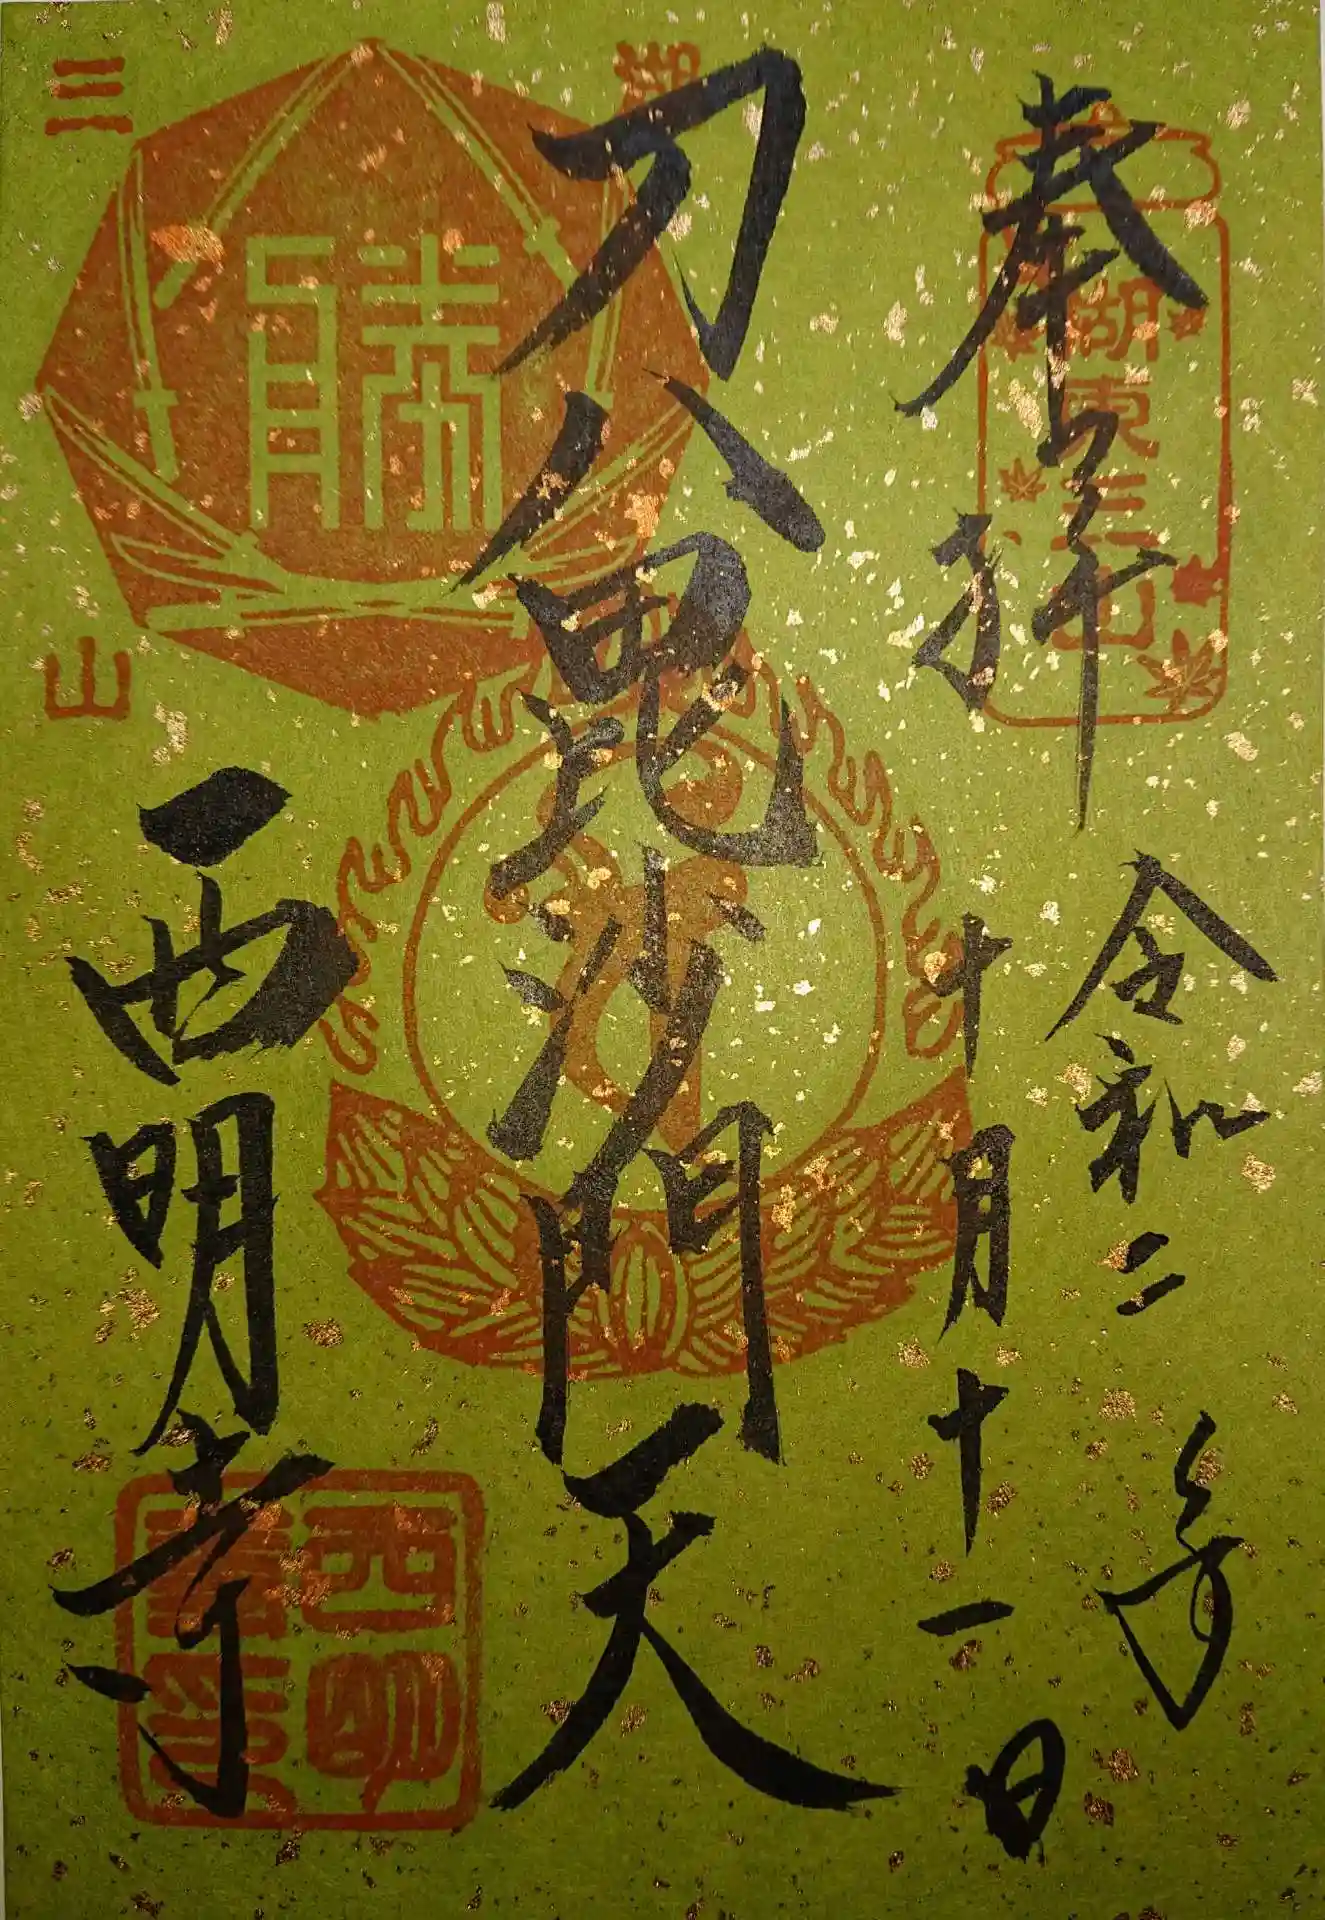 奉拝
湖東三山
令和二年
十月十一日
刀八毘沙門天
湖
三
山
勝
西明寺
西明